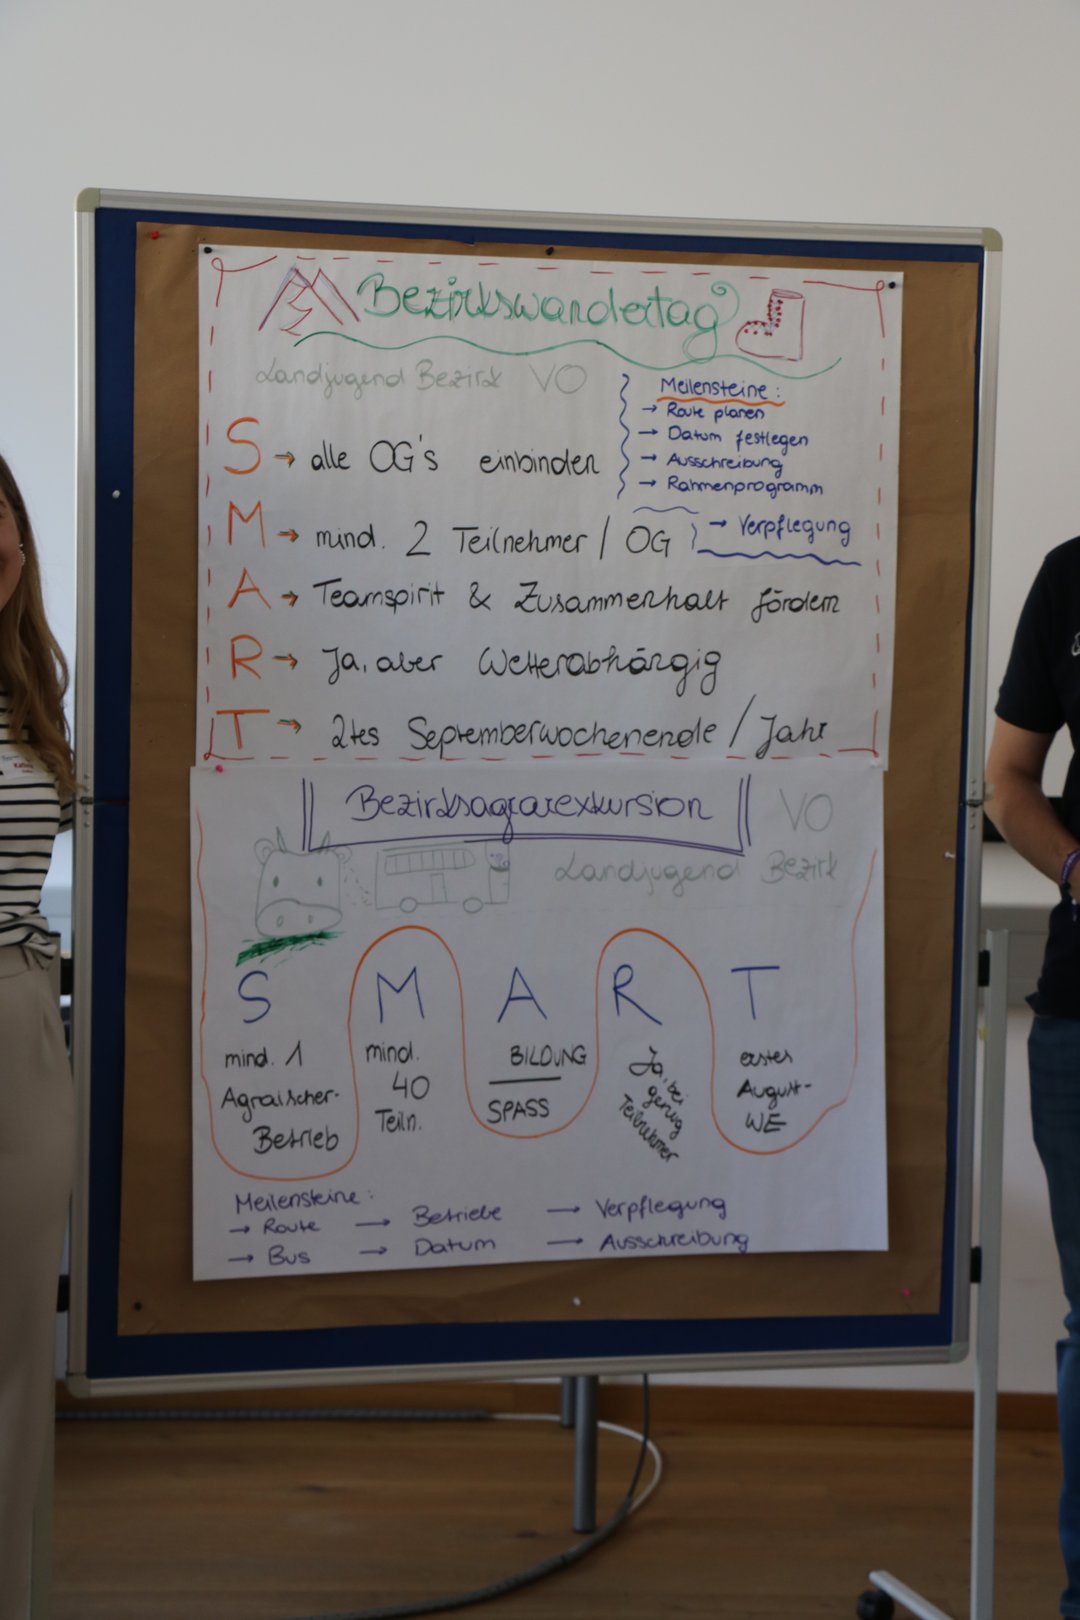 Bezirkswandertag
Landjugend Bezirk VO
Meilensteine:
→ Route planen
→ Datum festlegen
→ Ausschreibung
→ Rahmenprogramm
→ Verpflegung
S → alle OG's einbinden
M → mind. 2 Teilnehmer / OG
A → Teamspirit & Zusammenhalt fördern
R → Ja, aber Wetterabhängig
T → 2tes Septemberwochenende / Jahr
Bezirksagrarexkursion
VO
Landjugend Bezirk
S M A R T
mind. 1
Agraischer-
Betrieb
mind.
40
Teiln.
BILDUNG
SPASS
Ja, bei
genug
Teilnehmer
erstes
August-
WE
Meilensteine:
→ Route → Betriebe → Verpflegung
→ Bus → Datum → Ausschreibung